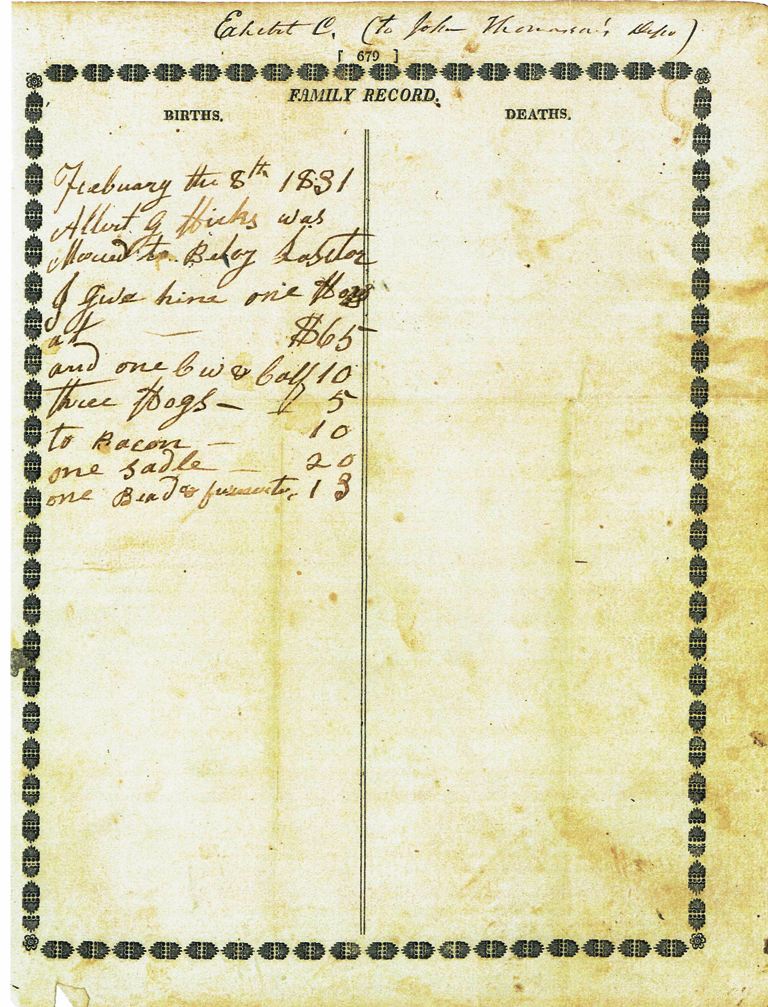 Exhibit C. (to John Thomason's Depo)
[ 679 ]
FAMILY RECORD.
BIRTHS.
DEATHS.
Febuary the 8th 1831
Albert G Hicks was
Maried to Betsy Lasitor
I give hime one Hors
at — $65
and one Cow & Calf 10
three Hogs — 5
to Bacon — 10
one Sadle — 20
one Bead & 13